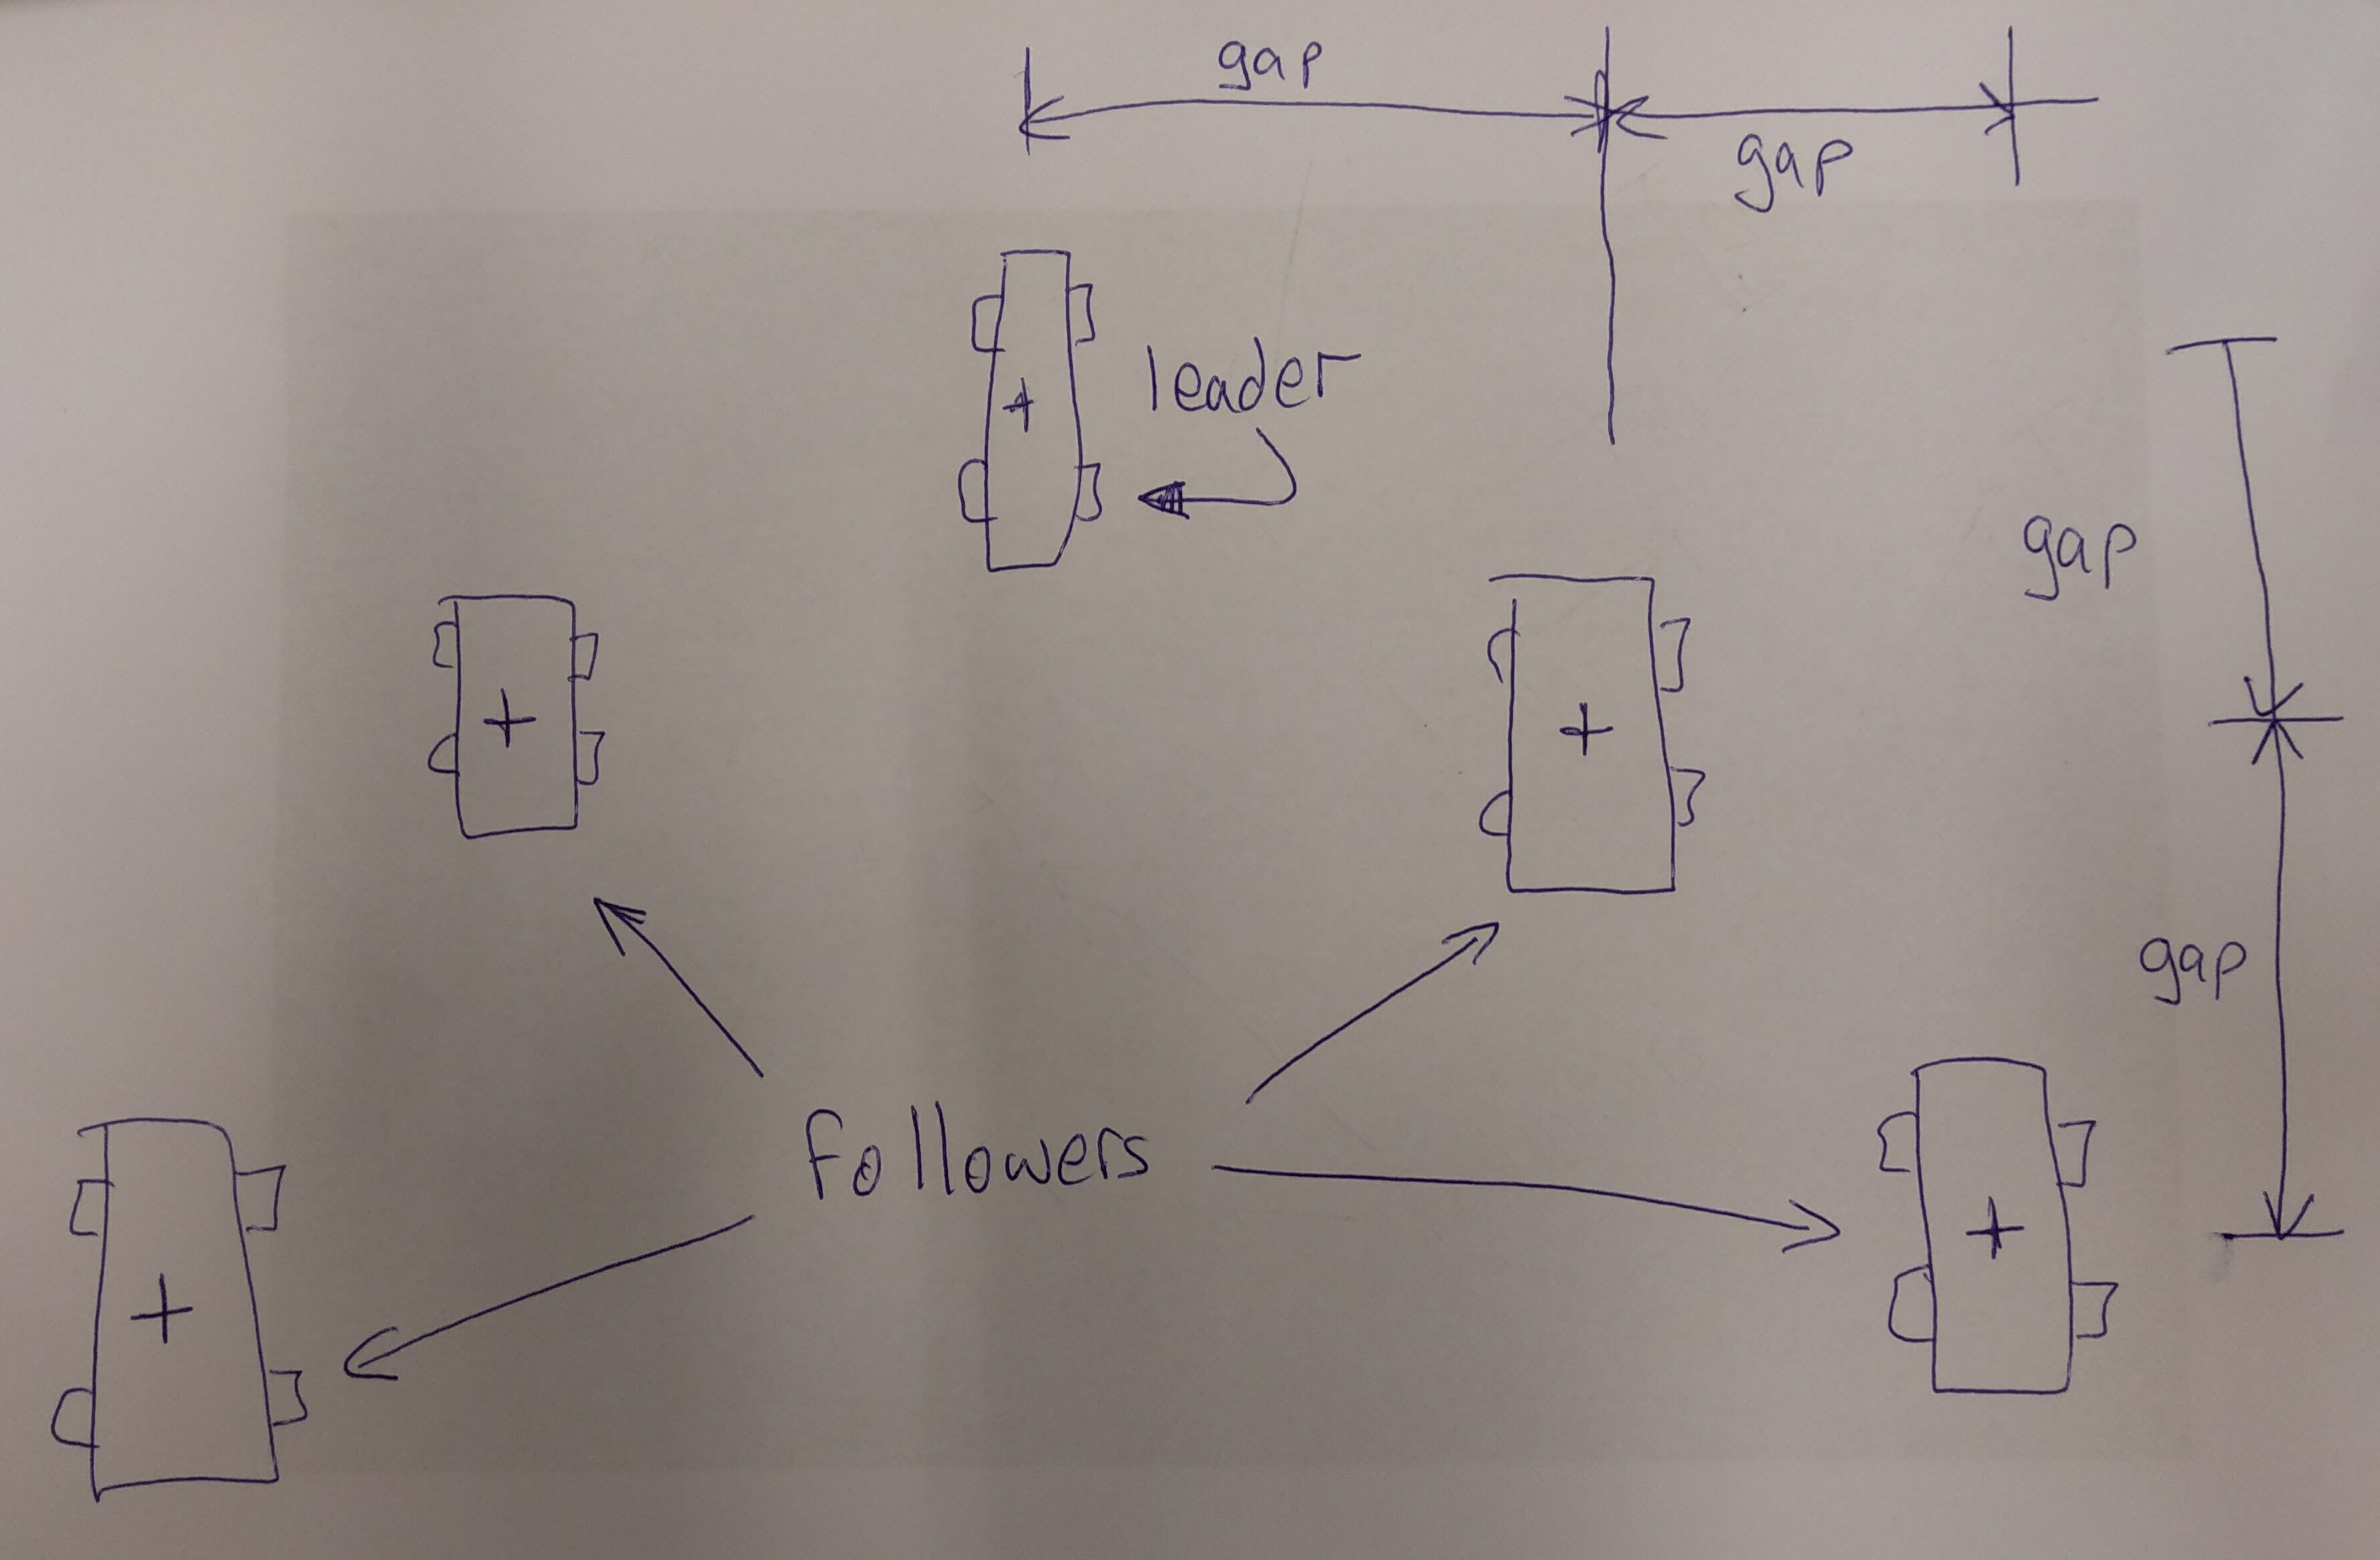 gap
gap
leader
gap
gap
followers